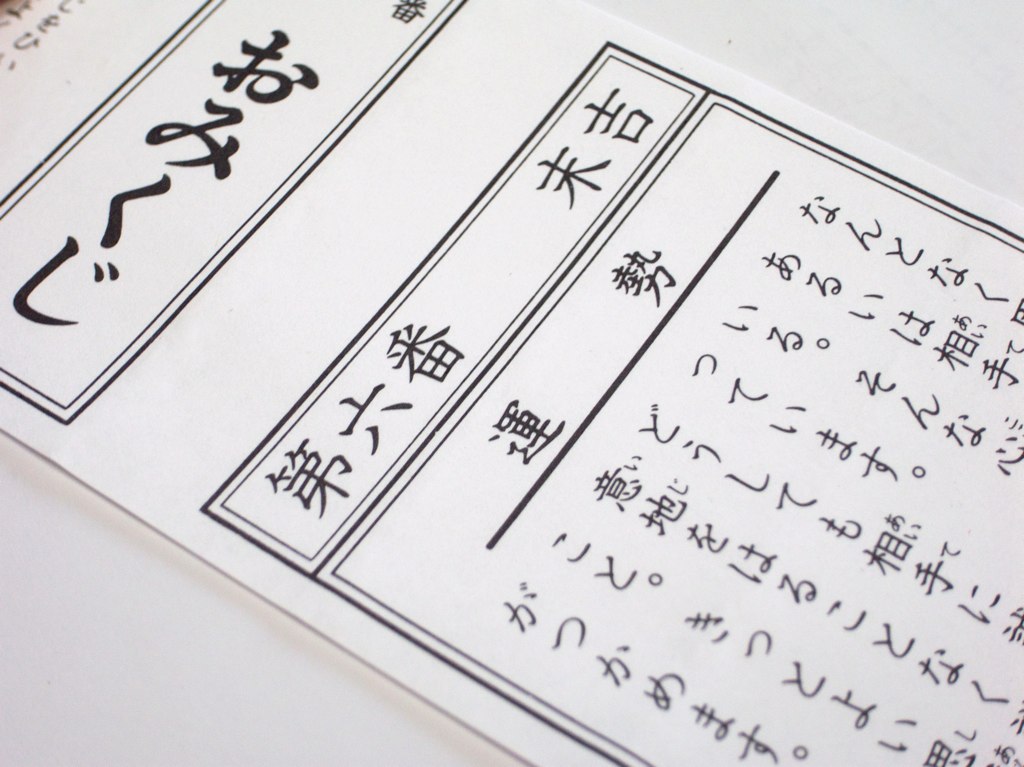 おみくじ
第六番 末吉
運勢
なんとなく
あるいは相手
いる。そんな心
っています。
どうしても相手に
意地をはることなく
こと。きっとよい思
がつかめます。